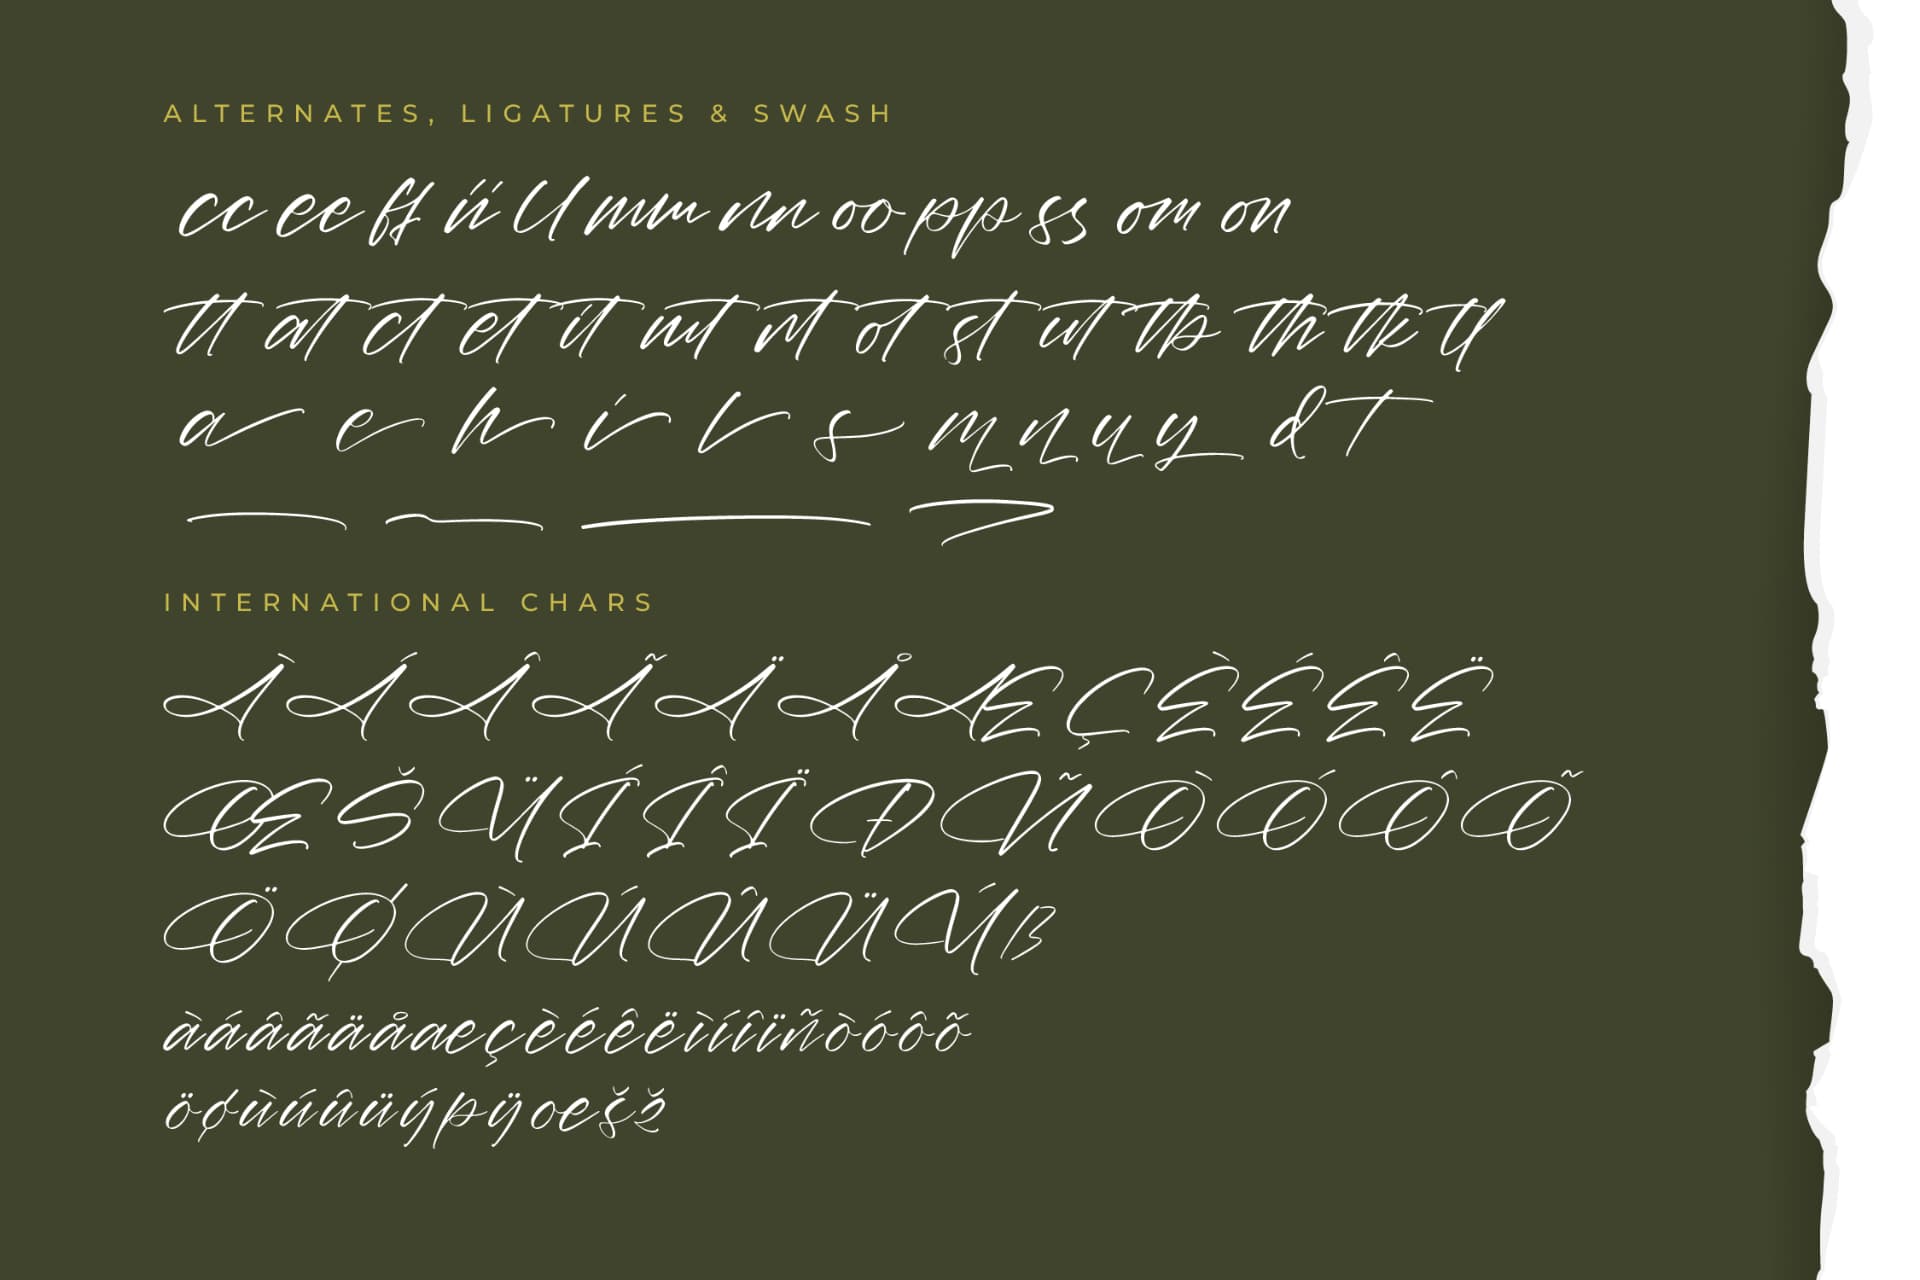 ALTERNATES, LIGATURES & SWASH
cc ee ff ii ll mm nn oo pp ss om on
tt at ct et it mt nt ot st ut tb th tk tl
a e h i l s m n u y d T
INTERNATIONAL CHARS
À Á Â Ã Ä Å Æ Ç È É Ê Ë
Œ Š Ÿ Í Î Ï Ð Ñ Ò Ó Ô Õ
Ö Ø Ù Ú Û Ü Ý ß
àáâãäåæçèéêëìíîïñòóôõ
öøùúûüýþÿœšž